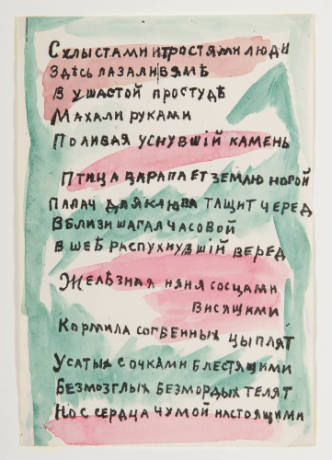 С хлыстами и тростями люди
Здѣсь лазали в ямѣ
В ушастой простудѣ
Махали руками
Поливая уснувшій камень
Птица царапает землю ногой
Палач для клюва тащит черед
Вблизи шагал часовой
В шеѣ распухнувшій веред
Желѣзная няня сосцами
висящими
Кормила согбенных цыплят
Усатых с очками блестящими
Безмозглых безмордых телят
Нос сердца чумой настоящими